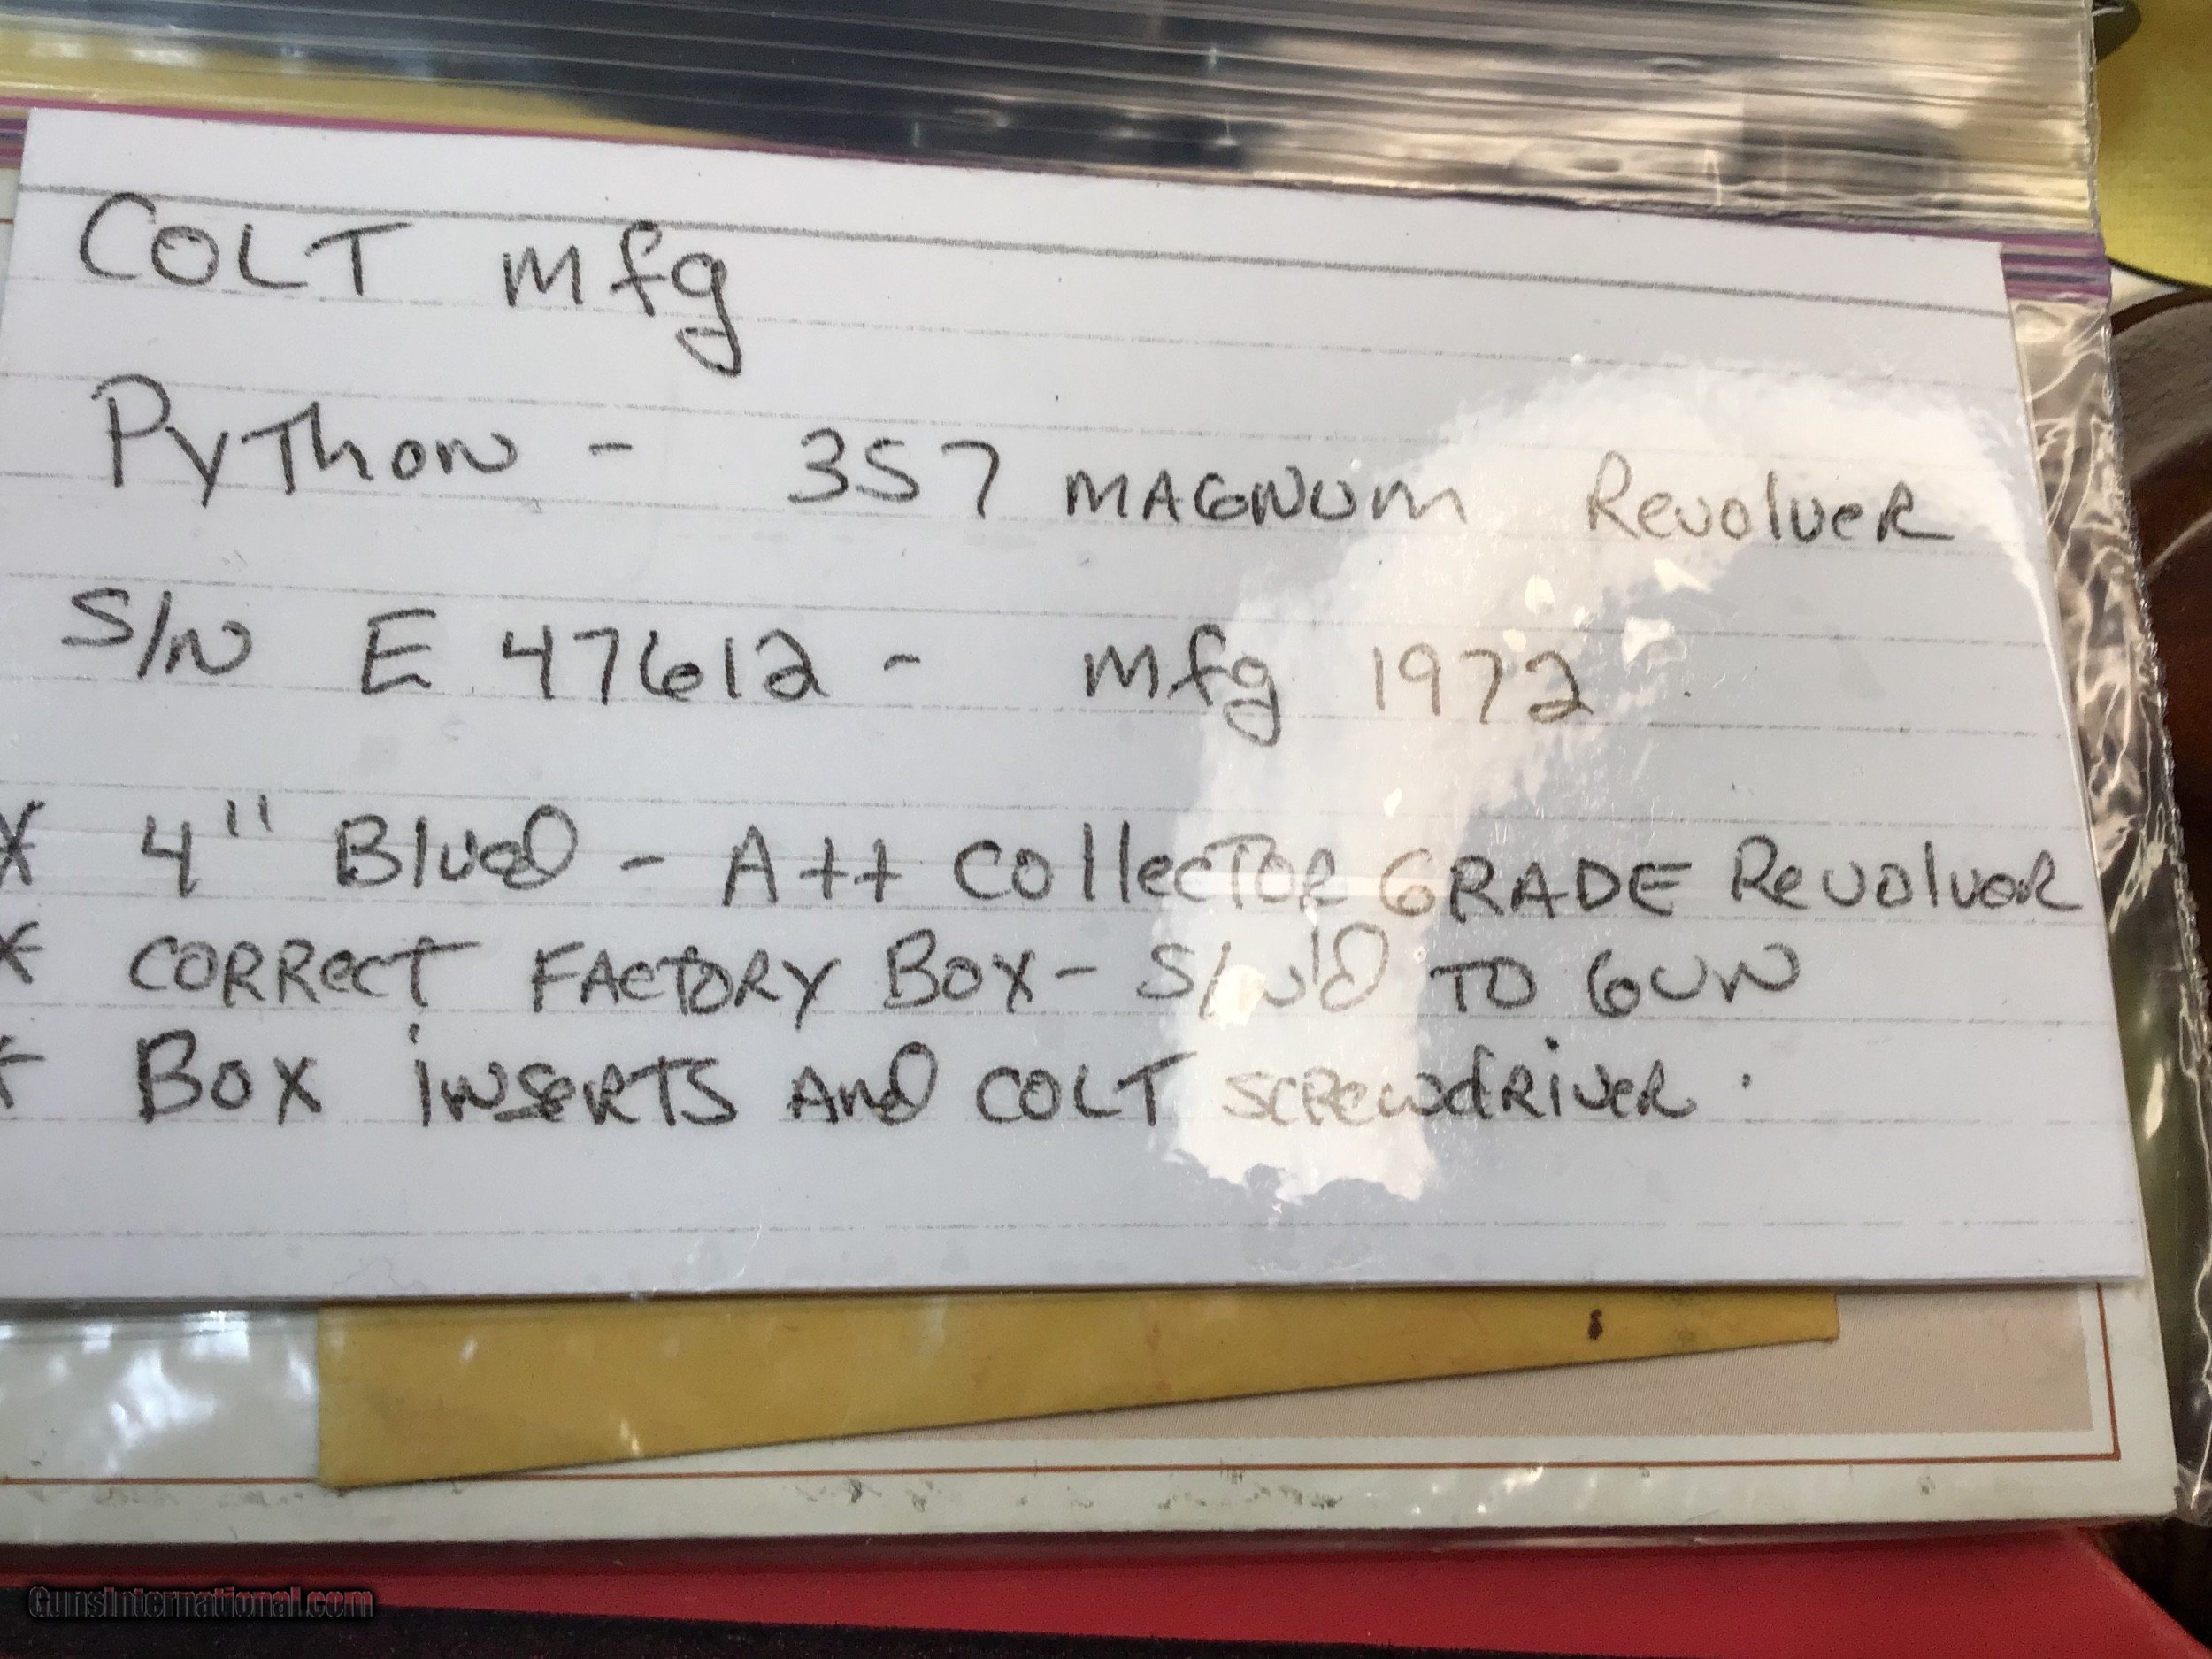 COLT mfg
PyThon - 357 MAGNUM Revolver
S/N E 47612 - mfg 1972
* 4" Blued - A++ Collector GRADE Revolver
* CORRecT FACTORY Box - S/N'd TO GUN
* Box inserTS And COLT screwdriver.
GunsInternational.com